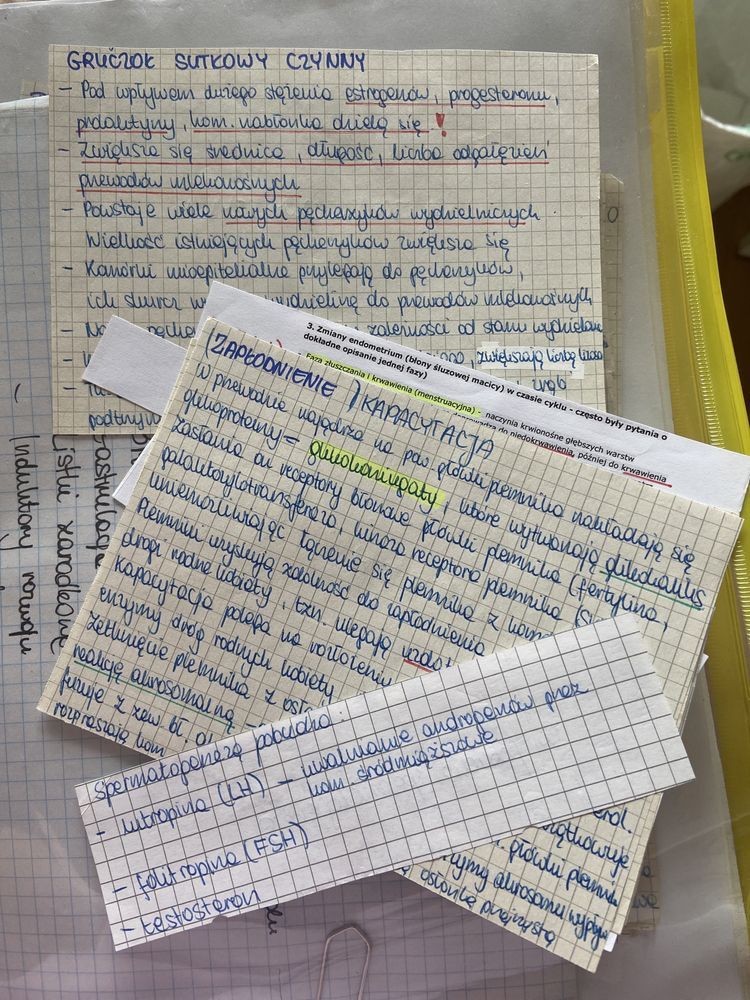 GRUCZOŁ SUTKOWY CZYNNY
- Pod wpływem dużego stężenia estrogenów, progesteronu,
prolaktyny, kom. nabłonka dzielą się!
- Zwiększa się średnica, długość, liczba odgałęzień
przewodów mlekonośnych
- Powstaje wiele nowych pęcherzyków wydzielniczych
Wielkość istniejących pęcherzyków zwiększa się
- Komórki mioepitelialne przylegają do pęcherzyków,
ich skurcz wydzielinę do przewodów mlekonośnych
zależności od stanu wydzielania
zwiększają liczbę
3. Zmiany endometrium (błony śluzowej macicy) w czasie cyklu - często były pytania o
dokładne opisanie jednej fazy)
Faza złuszczania i krwawienia (menstruacyjna) - naczynia krwionośne głębszych warstw
do niedokrwienia, później do krwawienia
(ZAPŁODNIENIE) KAPACYTACJA
W przewodzie najądrza na pow. główki plemnika nakładają się
glikoproteiny = glikokoniugaty, które wytwarzają glikokaliks
zasłania on receptory błonowe główki plemnika (fertylina,
galaktozylotransferaza, kinaza receptora plemnika
uniemożliwiając łączenie się plemnika z
Plemniki uzyskują zdolność do zapłodnienia
drogi rodne kobiety, tzn. ulegają
Kapacytacja polega na
enzymy dróg rodnych kobiety
Zetknięcie plemnika z
reakcję akrosomalną
fuzuje z zew. bł.
rozpraszają kom
Spermatogenezę pobudza:
- lutropina (LH) - uwalnianie androgenów przez
kom. śródmiąższowe
- folitropina (FSH)
- testosteron
główki plemnika
enzymy akrosomu
osłonkę przejrzystą
Listki zarodkowe
Induktory rozwoju